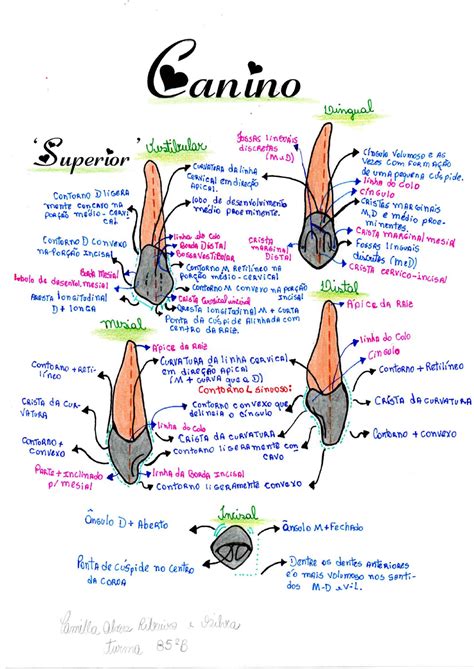 Canino
"Superior"
Vestibular
Contorno D ligeira
mente concavo na
porção médio-cervi-
cal
Contorno D convexo
na porção incisal
Borda Mesial
lobulo de desenvol. mesial
Aresta longitudinal
D + longa
Curvatura da linha
cervical em direção
apical.
lobo de desenvolvimento
médio proeminente.
linha do colo
Borda Distal
Bossa vestibular
Contorno M Retilíneo na
porção médio-cervical
Contorno M convexo na porção
incisal
Crista Cuspical incisal
Aresta longitudinal M + curta
Ponta da cúspide alinhada com
centro da raiz.
Lingual
Fossas linguais
discretas
(M e D)
Crista
marginal
Distal
Cíngulo volumoso e as
vezes com formação
de uma pequena cúspide.
linha do colo
cíngulo
Cristas marginais
M, D e médio proe-
minentes.
Crista marginal mesial
Fossas linguais
discretas (M e D)
Crista cervico-incisal
Mesial
Ápice da Raiz
Curvatura da linha cervical
em direção apical
(M + curva que a D)
Contorno L sinuoso:
Contorno convexo que
delineia o cíngulo
linha do colo
Crista da curvatura
Contorno ligeiramente con
cavo
linha da Borda incisal
Contorno ligeiramente convexo
Contorno + reti-
líneo
Crista da cur-
vatura
Contorno +
convexo
Parte + inclinado
p/ mesial
Distal
Ápice da Raiz
linha do colo
Cíngulo
Contorno + Retilíneo
Crista da curvatura
Contorno + convexo
Incisal
Ângulo D + Aberto
Ponta de cúspide no centro
da coroa
ângulo M + Fechado
Dentre os dentes anteriores
é o mais volumoso nos senti-
dos M-D e V-L.
Camilla Alves Ribeiro e
turma 85ºB